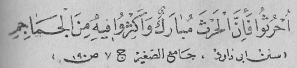 اُحْرُثُوْا فَاِنَّ الْحَرْثَ مُبَارَكٌ وَاَكْثِرُوْا فِيْهِ مِنَ الْجَمَاجِمِ
(سنن ابی داؤد ، جامع الصغیر ج ۷ ص ۱۹۰)